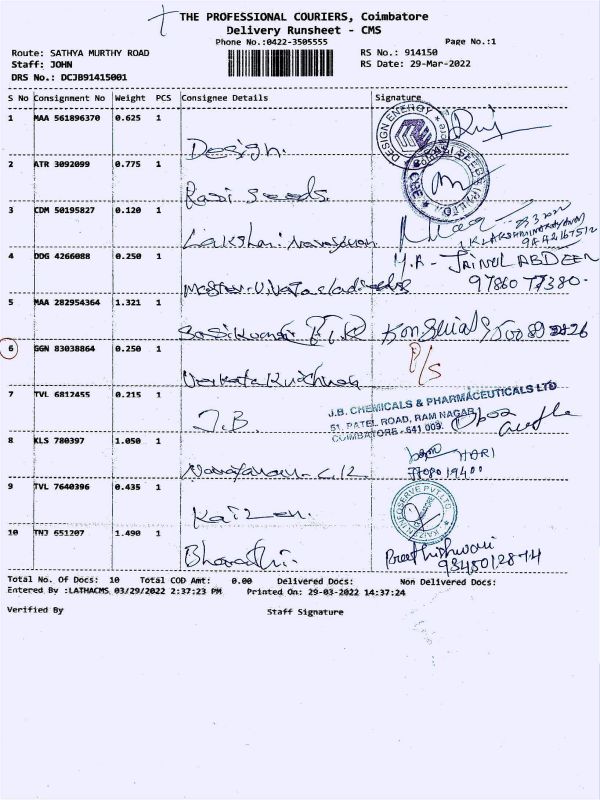 THE PROFESSIONAL COURIERS, Coimbatore
Delivery Runsheet - CMS
Phone No.:0422-3505555 Page No.:1
Route: SATHYA MURTHY ROAD RS No.: 914150
Staff: JOHN RS Date: 29-Mar-2022
DRS No.: DCJB91415001
S No Consignment No Weight PCS Consignee Details Signature
1 MAA 561896370 0.625 1
DESIGN ENERGY
Design.
2 ATR 3092099 0.775 1
Rasi Seeds.
3 CDM 50195827 0.120 1
4 DDG 4266088 0.250 1
M.A - JAINUL ABDEEN
97860 77380.
5 MAA 282954364 1.321 1
6 GGN 83038864 0.250 1
P/S
7 TVL 6812455 0.215 1
J.B. CHEMICALS & PHARMACEUTICALS LTD
51, PATEL ROAD, RAM NAGAR,
COIMBATORE - 641 009.
J.B.
8 KLS 780397 1.050 1
HARI
77080 19400
9 TVL 7640396 0.435 1
Kaizen.
10 TNJ 651207 1.490 1
Bharathi.
Total No. Of Docs: 10 Total COD Amt: 0.00 Delivered Docs: Non Delivered Docs:
Entered By :LATHACMS 03/29/2022 2:37:23 PM Printed On: 29-03-2022 14:37:24
Verified By Staff Signature